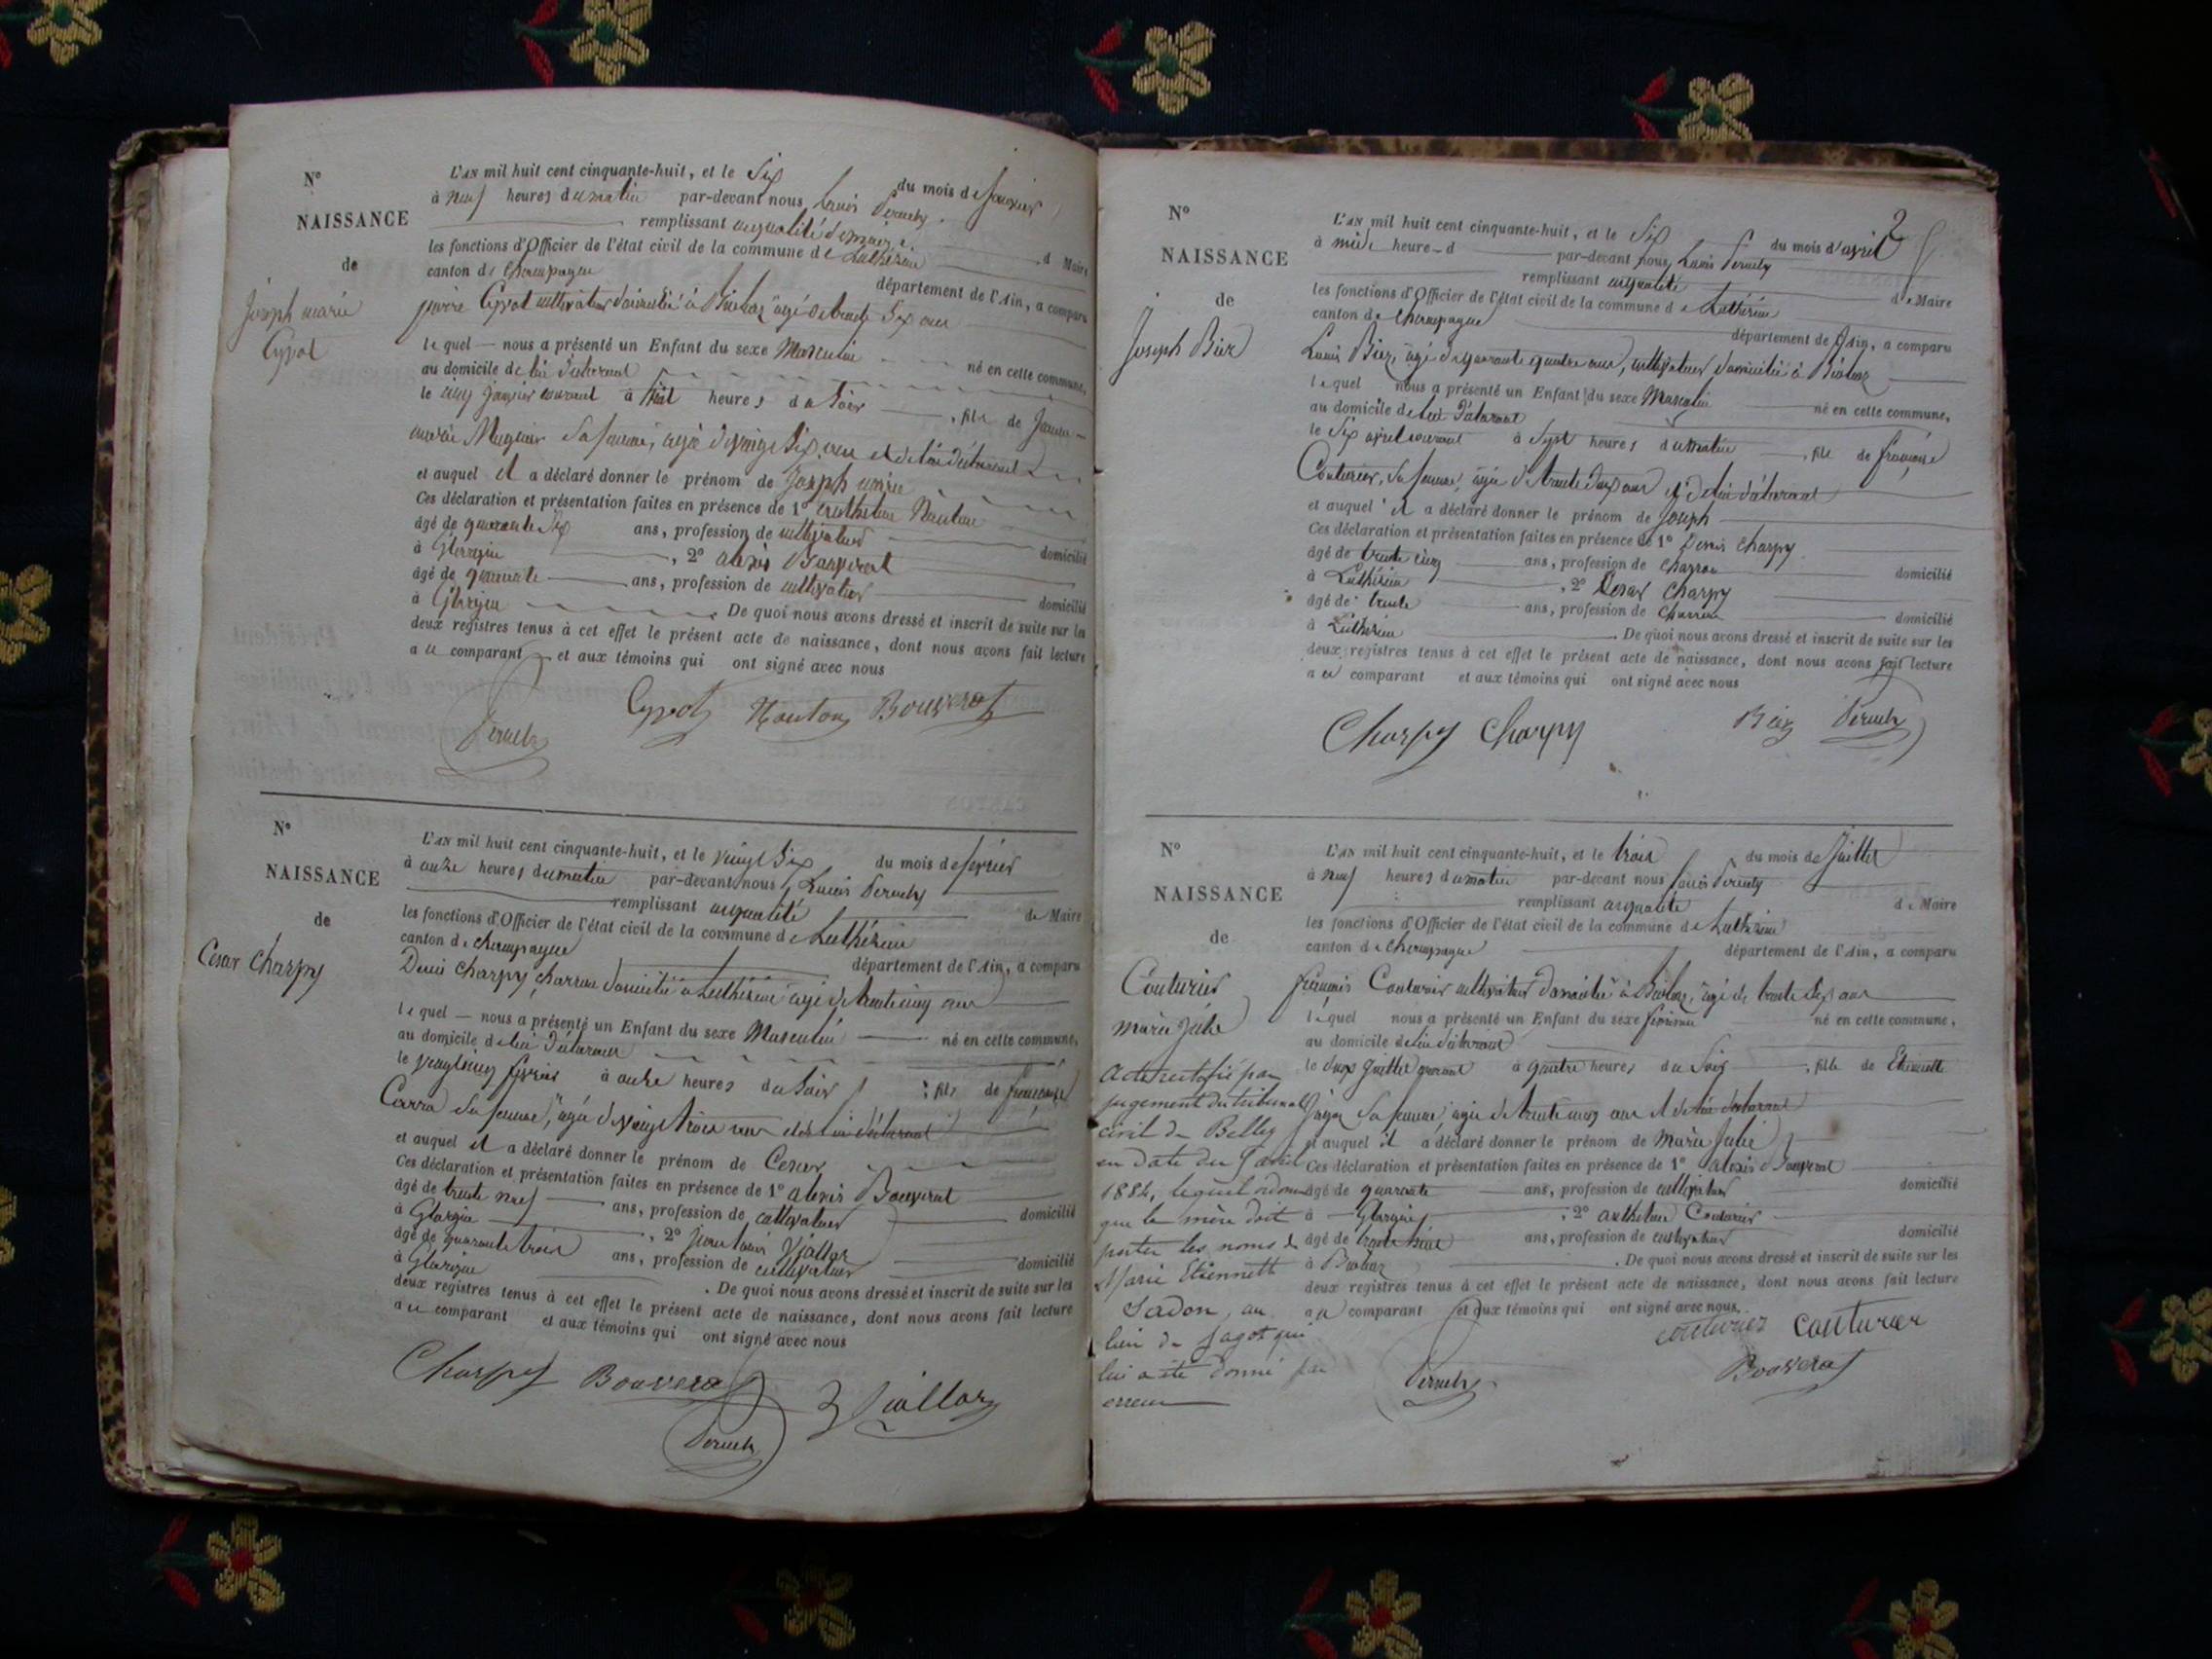 N°
NAISSANCE
de
Joseph marie
Cyvot
L'AN mil huit cent cinquante-huit, et le Six du mois de Janvier
à neuf heures du matin par-devant nous Louis
remplissant en qualité de maire d Maire
les fonctions d'Officier de l'état civil de la commune de Luthézieu
canton de Champagne département de l'Ain, a comparu
cultivateur domicilié à âgé de trente Six ans
lequel nous a présenté un Enfant du sexe Masculin né en cette commune,
au domicile de lui déclarant
le cinq janvier courant à huit heures du Soir, fils de
marie Sa femme, âgée de vingt Six ans et de lui déclarant
et auquel il a déclaré donner le prénom de Joseph marie
Ces déclaration et présentation faites en présence de 1° anthelme
âgé de quarante Six ans, profession de cultivateur domicilié
à, 2° alexis Bouverat
âgé de quarante ans, profession de cultivateur domicilié
à. De quoi nous avons dressé et inscrit de suite sur les
deux registres tenus à cet effet le présent acte de naissance, dont nous avons fait lecture
a ce comparant et aux témoins qui ont signé avec nous
Bouverat
N°
NAISSANCE
de
Cesar Charpy
L'AN mil huit cent cinquante-huit, et le vingt Six du mois de février
à onze heures du matin par-devant nous Louis
remplissant en qualité de Maire
les fonctions d'Officier de l'état civil de la commune de Luthézieu
canton de champagne département de l'Ain, a comparu
Denis Charpy, charron domicilié à Luthézieu âgé de trente cinq ans
lequel nous a présenté un Enfant du sexe Masculin né en cette commune,
au domicile de lui déclarant
le vingt cinq février à onze heures du Soir, fils de françoise
Carra Sa femme, âgée de vingt trois ans et de lui déclarant
et auquel il a déclaré donner le prénom de Cesar
Ces déclaration et présentation faites en présence de 1° alexis Bouverat
âgé de trente neuf ans, profession de cultivateur domicilié
à, 2° jean louis
âgé de quarante trois ans, profession de cultivateur domicilié
à. De quoi nous avons dressé et inscrit de suite sur les
deux registres tenus à cet effet le présent acte de naissance, dont nous avons fait lecture
a ce comparant et aux témoins qui ont signé avec nous
Charpy Bouverat
2
N°
NAISSANCE
de
Joseph
L'AN mil huit cent cinquante-huit, et le Six du mois d'avril
à midi heure d par-devant nous, Louis
remplissant en qualité de Maire
les fonctions d'Officier de l'état civil de la commune de Luthézieu
canton de Champagne département de l'Ain, a comparu
Louis âgé de quarante quatre ans, cultivateur domicilié à
lequel nous a présenté un Enfant du sexe Masculin né en cette commune,
au domicile de lui déclarant
le Six avril courant à Sept heures du matin, fils de françoise
Couturier, Sa femme, âgée de trente ans et de lui déclarant
et auquel il a déclaré donner le prénom de Joseph
Ces déclaration et présentation faites en présence de 1° Denis Charpy
âgé de trente cinq ans, profession de Charron domicilié
à Luthézieu, 2° Cesar Charpy
âgé de trente ans, profession de Charron domicilié
à Luthézieu. De quoi nous avons dressé et inscrit de suite sur les
deux registres tenus à cet effet le présent acte de naissance, dont nous avons fait lecture
a ce comparant et aux témoins qui ont signé avec nous
Charpy Charpy
N°
NAISSANCE
de
Couturier
marie Julie
L'AN mil huit cent cinquante-huit, et le trois du mois de Juillet
à neuf heures du matin par-devant nous Louis
remplissant en qualité de Maire
les fonctions d'Officier de l'état civil de la commune de Luthézieu
canton de champagne département de l'Ain, a comparu
françois Couturier cultivateur domicilié à, âgé de trente Six ans
lequel nous a présenté un Enfant du sexe féminin né en cette commune,
au domicile de lui déclarant
le deux Juillet courant à quatre heures du Soir, fille de Etiennette
Sa femme, âgée de trente cinq ans et de lui déclarant
et auquel il a déclaré donner le prénom de Marie Julie
Ces déclaration et présentation faites en présence de 1° alexis Bouverat
âgé de quarante ans, profession de cultivateur domicilié
à, 2° anthelme Couturier
âgé de trente ans, profession de cultivateur domicilié
à. De quoi nous avons dressé et inscrit de suite sur les
deux registres tenus à cet effet le présent acte de naissance, dont nous avons fait lecture
a ce comparant et aux témoins qui ont signé avec nous.
couturier couturier
Bouverat
Acte rectifié par
jugement du tribunal
civil de Belley
en date du avril
1884, lequel ordonne
que la mère doit
porter les noms de
Marie Etiennette
Jadon, au
lieu de Jagot qui
lui a été donné par
erreur